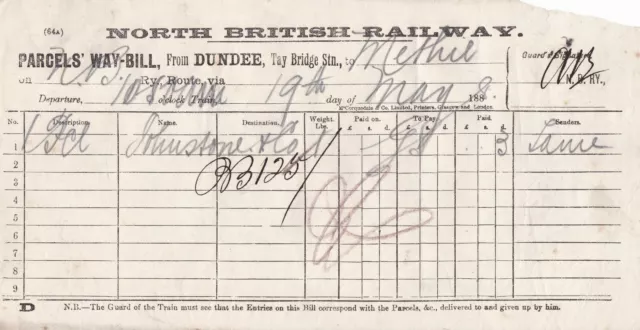 (64A)
NORTH BRITISH RAILWAY.
PARCELS' WAY-BILL, From DUNDEE, Tay Bridge Stn., to Methil
Guard's Signature
on N.B. Ry. Route, via
N. B. RY.
Departure, o'clock Train, 19th day of May 1888.
McCorquodale & Co. Limited, Printers, Glasgow and London.
No. Description. Name. Destination. Weight Lbs. Paid on. To Pay. Paid. Senders.
£ s. d. £ s. d. £ s. d.
1 1 Pcl Johnstone & Co 3 Same
2
3 B125
4
5
6
7
8
9
D N.B.—The Guard of the Train must see that the Entries on this Bill correspond with the Parcels, &c., delivered to and given up by him.